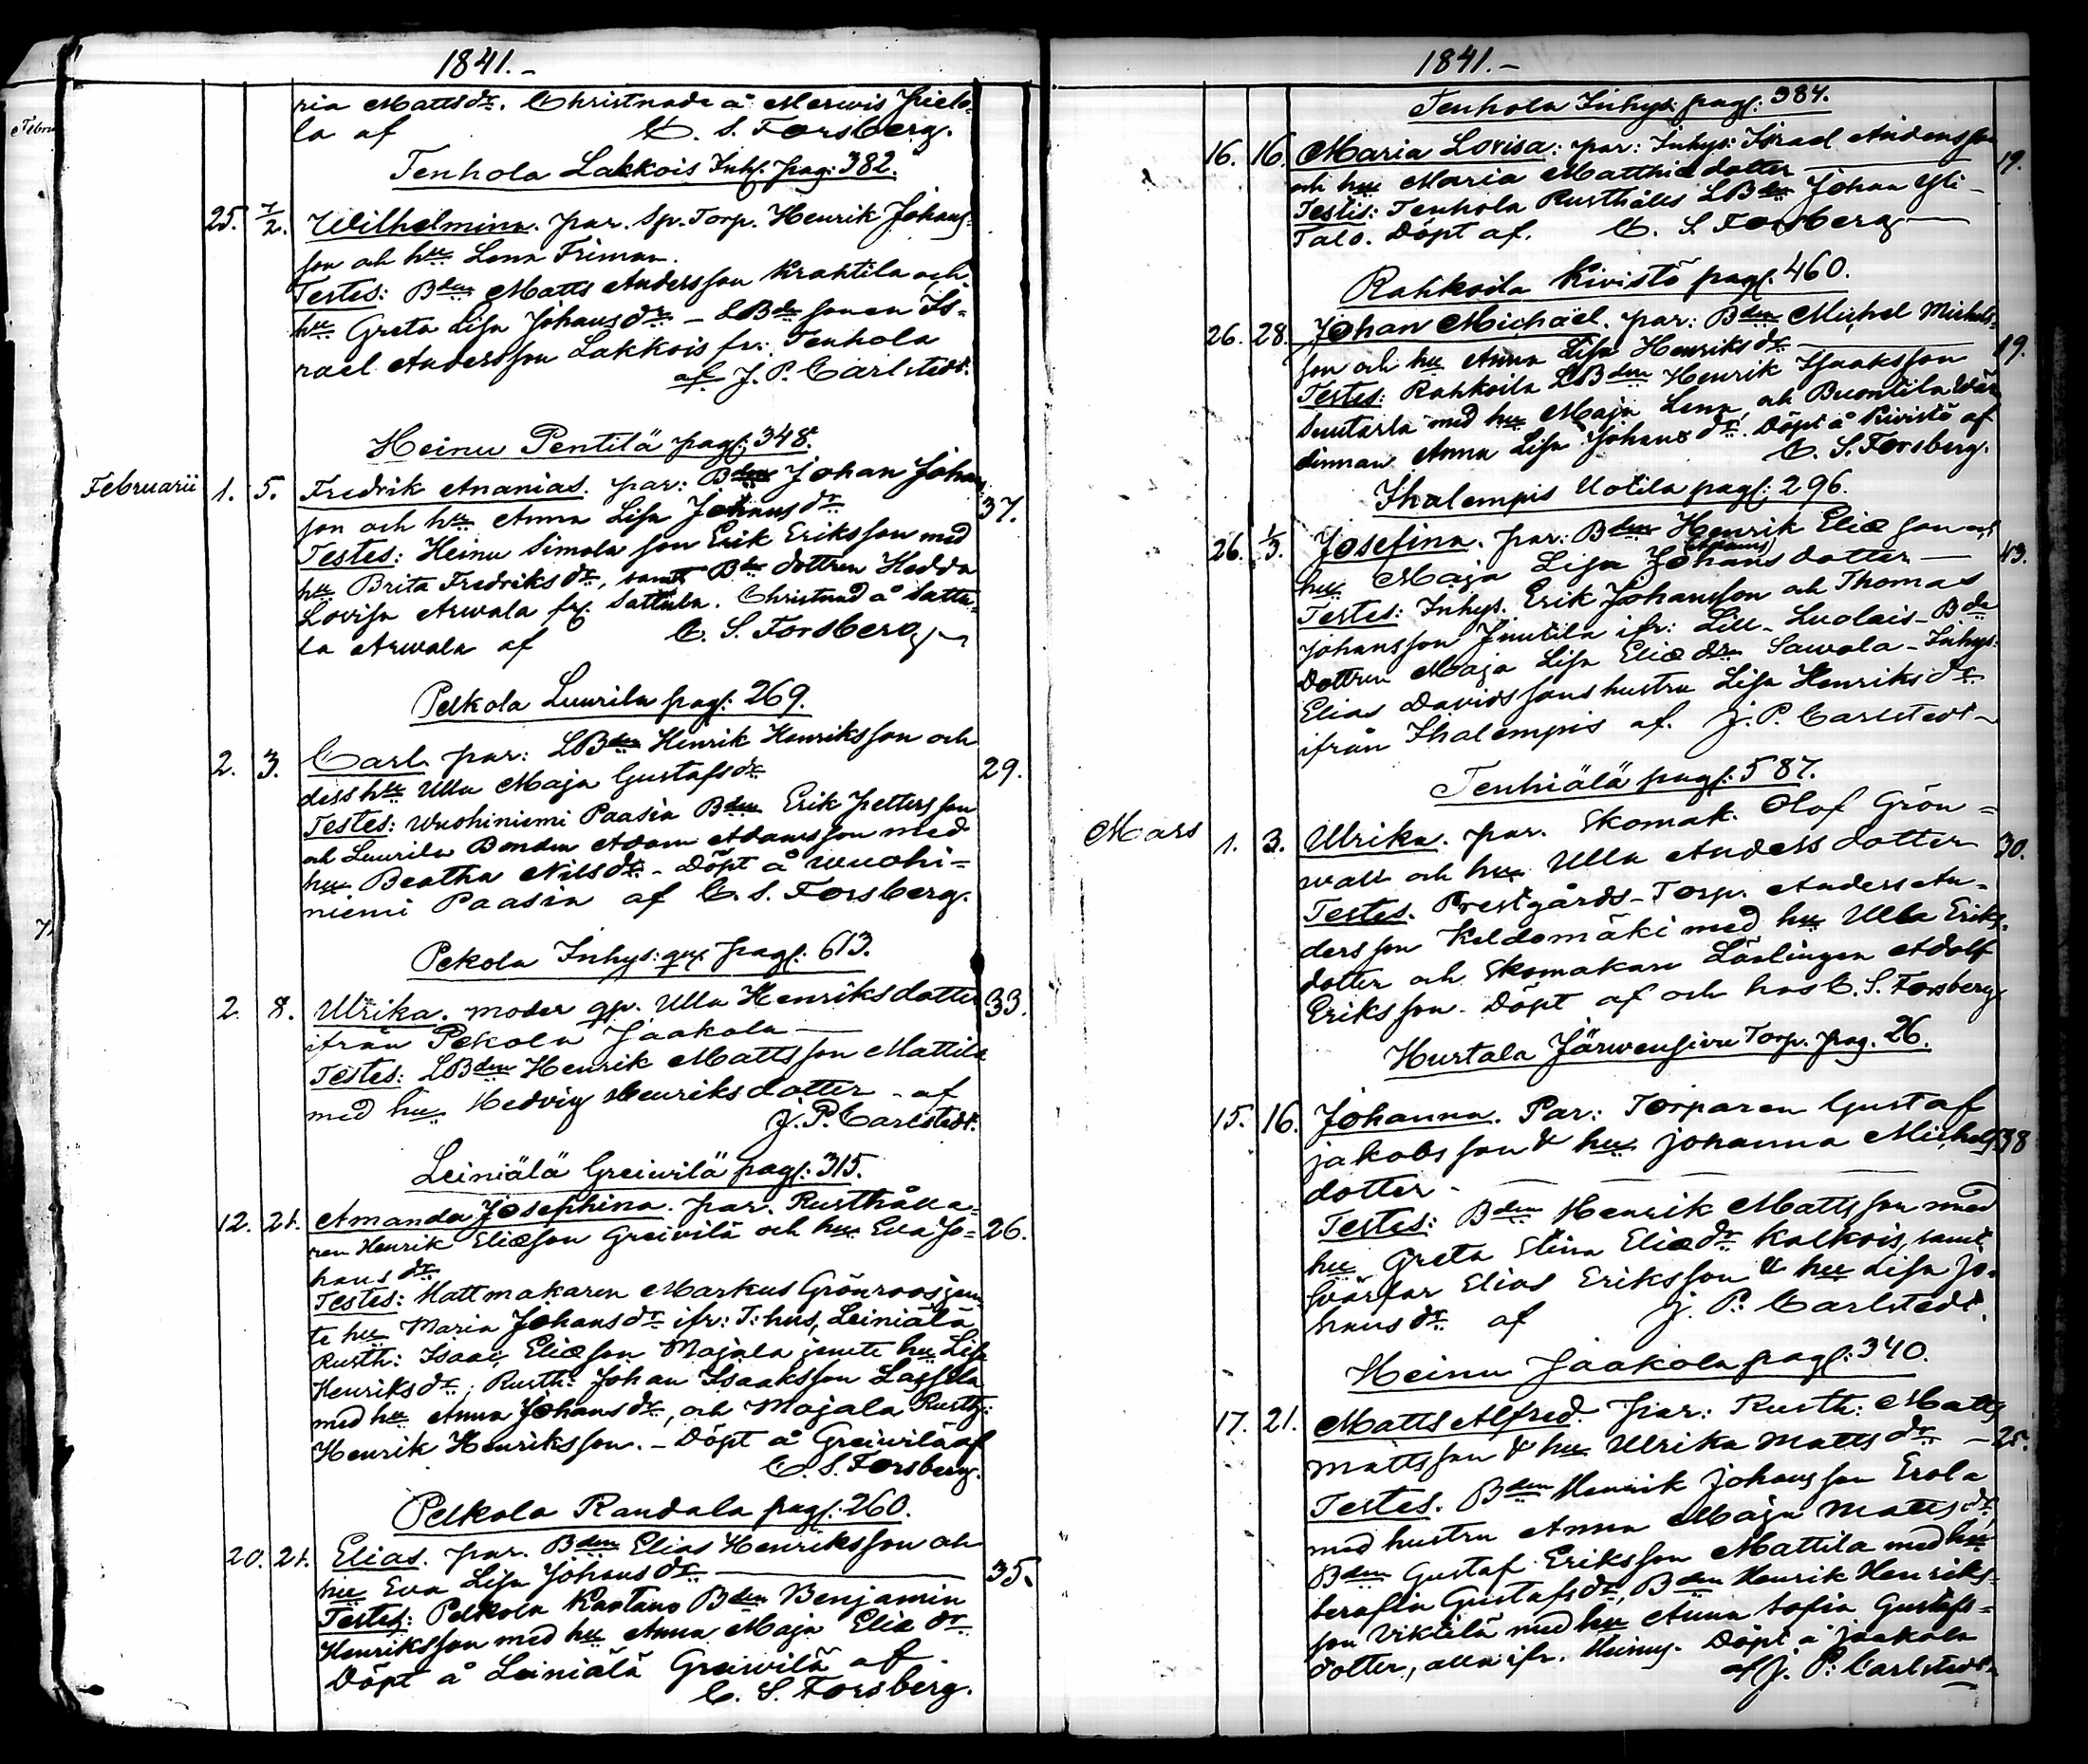 1841.-
ria Mattsdr. Christnade å Merwis Pielo-
la af C. S. Forsberg.
Tenhola Lakkois Inh. pag: 382.
25. 7/2. Wilhelmina. par. Sp. Torp. Henrik Johans-
son och hu Lena Friman.
Testes: Bden Matts Andersson Krahtila och
hu Greta Lisa Johansdr - LBde sonen Is-
rael Andersson Lakkois fr: Tenhola
af J. P. Carlstedt.
Heinu Pentilä pag: 348.
Februarii 1. 5. Fredrik Ananias. par: Bden Johan Johans
son och hu Anna Lisa Johansdr 37.
Testes: Heinu Simola son Erik Eriksson med
hu Brita Fredriksdr, samt Bde dottren Hedda
Lovisa Arwala fr. Sattula. Christnad å Sattu-
la Arwala af C. S. Forsberg
Pelkola Luurila pag: 269.
2. 3. Carl. par: LBden Henrik Henriksson och
dess hu Ulla Maja Gustafsdr 29.
Testes: Wuohiniemi Paasia Bden Erik Pettersson
och Luurila Bonden Adam Adamsson med
hu Beatha Nilsdr. - Döpt å Wuohi=
niemi Paasia af C. S. Forsberg.
Pekola Inhys: qp. pag: 613.
2. 8. Ulrika. moder qp. Ulla Henriksdotter 33.
ifrån Pekola Jaakola
Testes: LBden Henrik Mattsson Mattila
med hu Hedvig Henriksdotter - af
J. P. Carlstedt.
Leiniälä Greiwilä pag: 315.
12. 21. Amanda Josephina. par. Rusthålla-
ren Henrik Eliæson Greivilä och hu Eva Jo= 26.
hansdr
Testes: Hattmakaren Markus Grönroos jem-
te hu Maria Johansdr ifr: T:hus, Leiniälä
Rusth: Isaac Eliæson Majala jemte hu Lisa
Henriksdr; Rusth: Johan Isaaksson Lassila
med hu Anna Johansdr, och Majala Rusth:
Henrik Henriksson. - Döpt å Greiwilä af
C. S. Forsberg.
Pelkola Randala pag: 260.
20. 21. Elias. par. Bden Elias Henriksson och
hu Eva Lisa Johansdr 35.
Testes: Pelkola Kantano Bden Benjamin
Henriksson med hu Anna Maja Eliædr
Döpt å Leiniälä Greiwilä af
C. S. Forsberg.
1841.-
Tenhola Inhys: pag: 384.
16. 16. Maria Lovisa: par: Inhys: Israel Andersson
och hu Maria Matthiædotter 19.
Testis: Tenhola Rusthålls LBden Johan Yli-
Talo. Döpt af. C. S. Forsberg
Rahkoila Kivistö pag: 460.
26. 28. Johan Michaël. par: Bden Michel Michels-
son och hu Anna Lisa Henriksdr 19.
Testes: Rahkoila LBden Henrik Isaaksson
Suutarla med hu Maja Lena, och Buontila Wär
dinnan Anna Lisa Johansdr. Döpt å Kivistö af
C. S. Forsberg.
Ihalempis Uotila pag: 296.
26. 1/3. Josefina. par: Bden Henrik Eliæson och
hu Maja Lisa Johansdotter 43.
Testes: Inhys. Erik Johansson och Thomas
Johansson Juutila ifr: Lill-Luolais - Bde
Dottren Maja Lisa Eliædr Sawola - Inhys:
Elias Davidssons hustru Lisa Henriksdr
ifrån Ihalempis af. J. P. Carlstedt
Tenhiälä pag: 587.
Mars 1. 3. Ulrika. par. Skomak. Olof Grön=
wall och hu Ulla Andersdotter 30.
Testes. Prestgårds-Torp. Anders An-
dersson Keldomäki med hu Ulla Eriks-
dotter och Skomakare Lärlingen Adolf
Eriksson. Döpt af och hos C. S. Forsberg
Hurtala Järwensivu Torp. pag. 26.
15. 16. Johanna. Par: Torparen Gustaf
Jakobsson & hu Johanna Michels 38
dotter.
Testes: Bden Henrik Mattsson med
hu Greta Stina Eliædr Kalkois, samt
Svärfar Elias Eriksson & hu Lisa Jo-
hansdr af J. P. Carlstedt.
Heinu Jaakola pag: 340.
17. 21. Matts Alfred. par: Rusth: Matts
Mattsson & hu Ulrika Mattsdr 25.
Testes. Bden Henrik Johansson Erola
med hustru Anna Maja Mattsdr,
Bden Gustaf Eriksson Mattila med hu
Serafia Gustafsdr, Bden Henrik Henriks-
son Viktilä med hu Anna Sofia Gustafs=
dotter, alla ifr. Heinu. Döpt å Jaakola
af J. P. Carlstedt